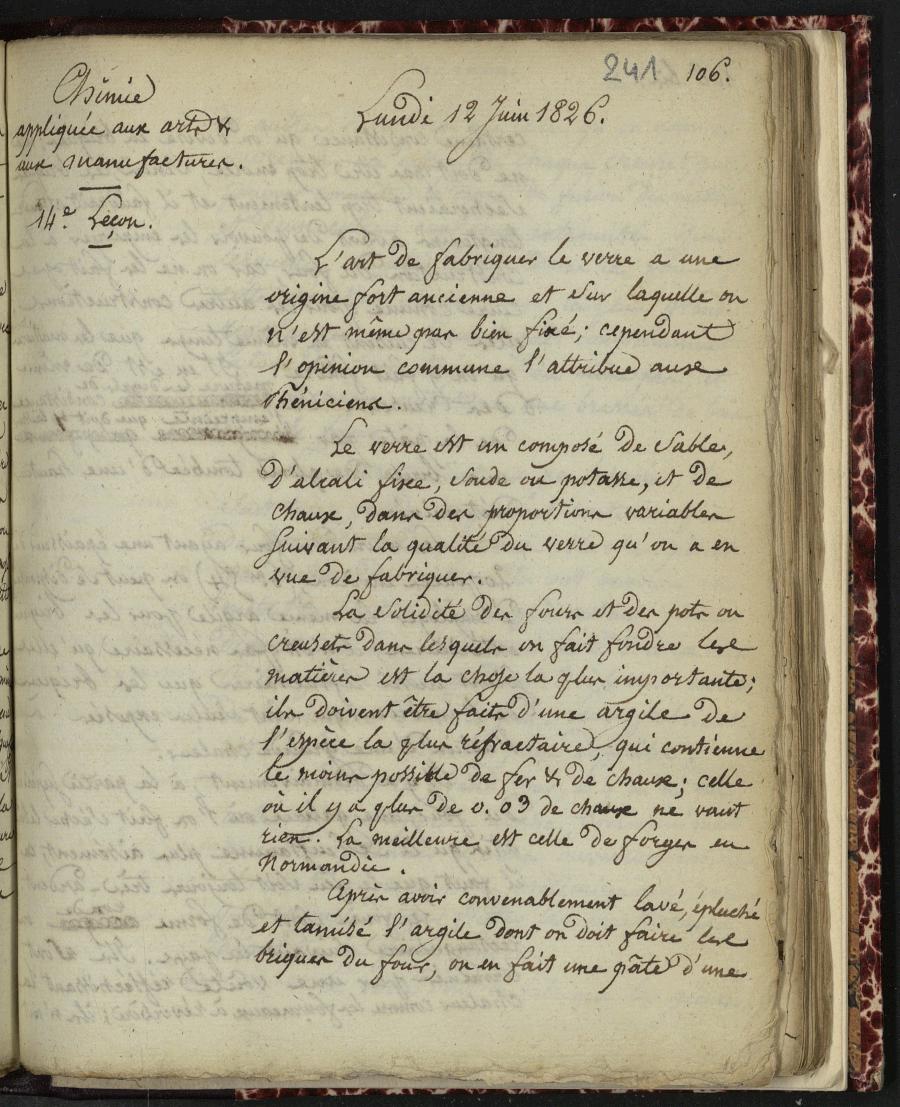 241 106.
Chimie
appliquée aux arts &
aux manufactures.
14.e Leçon.
Lundi 12 Juin 1826.
L'art de fabriquer le verre a une
origine fort ancienne et sur laquelle on
n'est même pas bien fixé; cependant
l'opinion commune l'attribue aux
Phéniciens.
Le verre est un composé de sable,
d'alcali fixe, soude ou potasse, et de
chaux, dans des proportions variables
suivant la qualité du verre qu'on a en
vue de fabriquer.
La solidité des fours et des pots ou
creusets dans lesquels on fait fondre les
matières est la chose la plus importante;
ils doivent être faits d'une argile de
l'espèce la plus réfractaire, qui contienne
le moins possible de fer & de chaux; celle
où il y a plus de 0.03 de chaux ne vaut
rien. La meilleure est celle de forges en
Normandie.
Après avoir convenablement lavé, épluché
et tamisé l'argile dont on doit faire les
briques du four, on en fait une pâte d'une